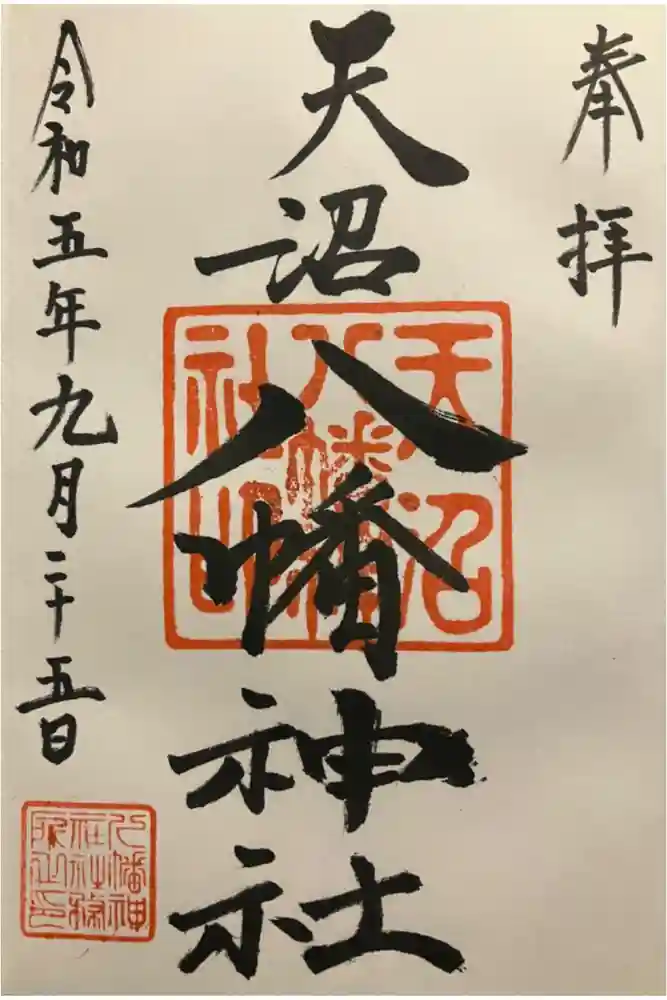 奉拝
天沼八幡神社
天沼八幡神社印
令和五年九月二十五日